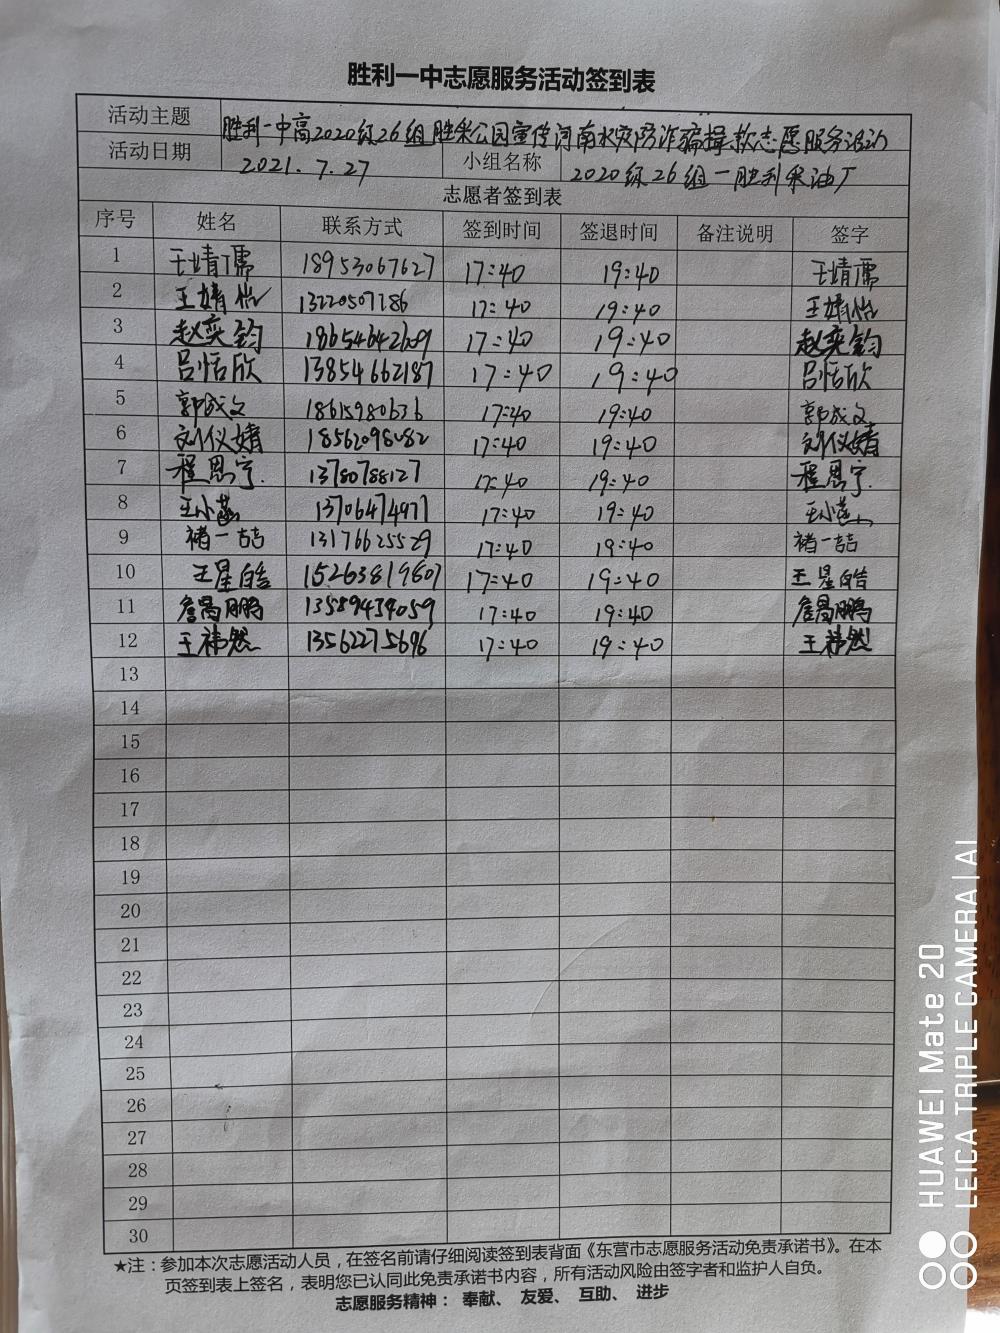 胜利一中志愿服务活动签到表
活动主题 胜利一中高2020级26组胜采公园宣传河南水灾防诈骗捐款志愿服务活动
活动日期 2021.7.27 小组名称 2020级26组一胜利采油厂
志愿者签到表
序号 姓名 联系方式 签到时间 签退时间 备注说明 签字
1 王靖儒 18953067627 17:40 19:40 王靖儒
2 王婧怡 13220507786 17:40 19:40 王婧怡
3 赵奕钧 18654642609 17:40 19:40 赵奕钧
4 吕恬欣 13854662187 17:40 19:40 吕恬欣
5 郭成文 18615980636 17:40 19:40 郭成文
6 刘仪婧 17:40 19:40 刘仪婧
7 程思宁 17:40 19:40 程思宁
8 王小 13706474977 17:40 19:40 王小
9 褚一喆 13176625529 17:40 19:40 褚一喆
10 王星皓 15263819607 17:40 19:40 王星皓
11 詹昌鹏 13589439059 17:40 19:40 詹昌鹏
12 王祎然 13562275696 17:40 19:40 王祎然
13
14
15
16
17
18
19
20
21
22
23
24
25
26
27
28
29
30
★注：参加本次志愿活动人员，在签名前请仔细阅读签到表背面《东营市志愿服务活动免责承诺书》。在本
页签到表上签名，表明您已认同此免责承诺书内容，所有活动风险由签字者和监护人自负。
志愿服务精神： 奉献、 友爱、 互助、 进步
HUAWEI Mate 20
LEICA TRIPLE CAMERA | AI